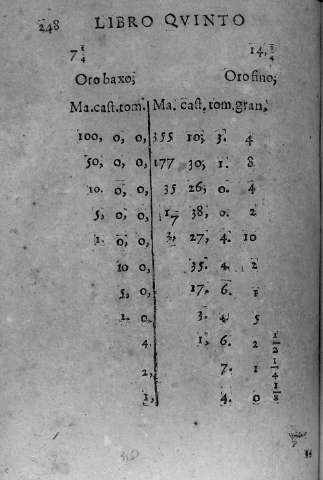 248 LIBRO QVINTO
7 1/4 14, 1/4
Oro baxo; Oro fino;
Ma. cast. tom. Ma. cast. tom. gran,
100, 0, 0, 355 10; 3. 4
50, 0, 0, 177 30, 1. 8
10. 0, 0, 35 26, 0. 4
5, 0, 0, 17 38, 0. 2
1. 0, 0, 3, 27, 4. 10
10 0, 35. 4. 2
5, 0, 17, 6. 1
1. 0. 3. 4, 5
4. 1, 6. 2 1/2
2, 7. 1 1/4
1, 4. 0 1/8